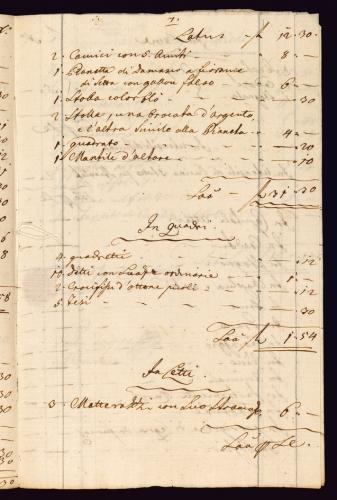 7.
Latus - f 12. 30.
2. Camici con S. Amiti - 8 -
1. Pianetta di Damasco a fiorame
di Seta con gallon falso - 6 -
1. Stola color - 30
2. Stolle, una brocata d'argento,
e l'altra simile alla Pianeta - 4 -
1. quadrato - 20
1. Mantile d'altare - 10
Laa - f 31. 30
In quadri.
4. quadretti - 12
10. Detti con ordinarie - 1 -
2. Crocifissi d'ottone picoli - 12
5. Tesi - 30
Laa f 1. 54
In Letti.
3. Matterazzi con 6 -
Laa